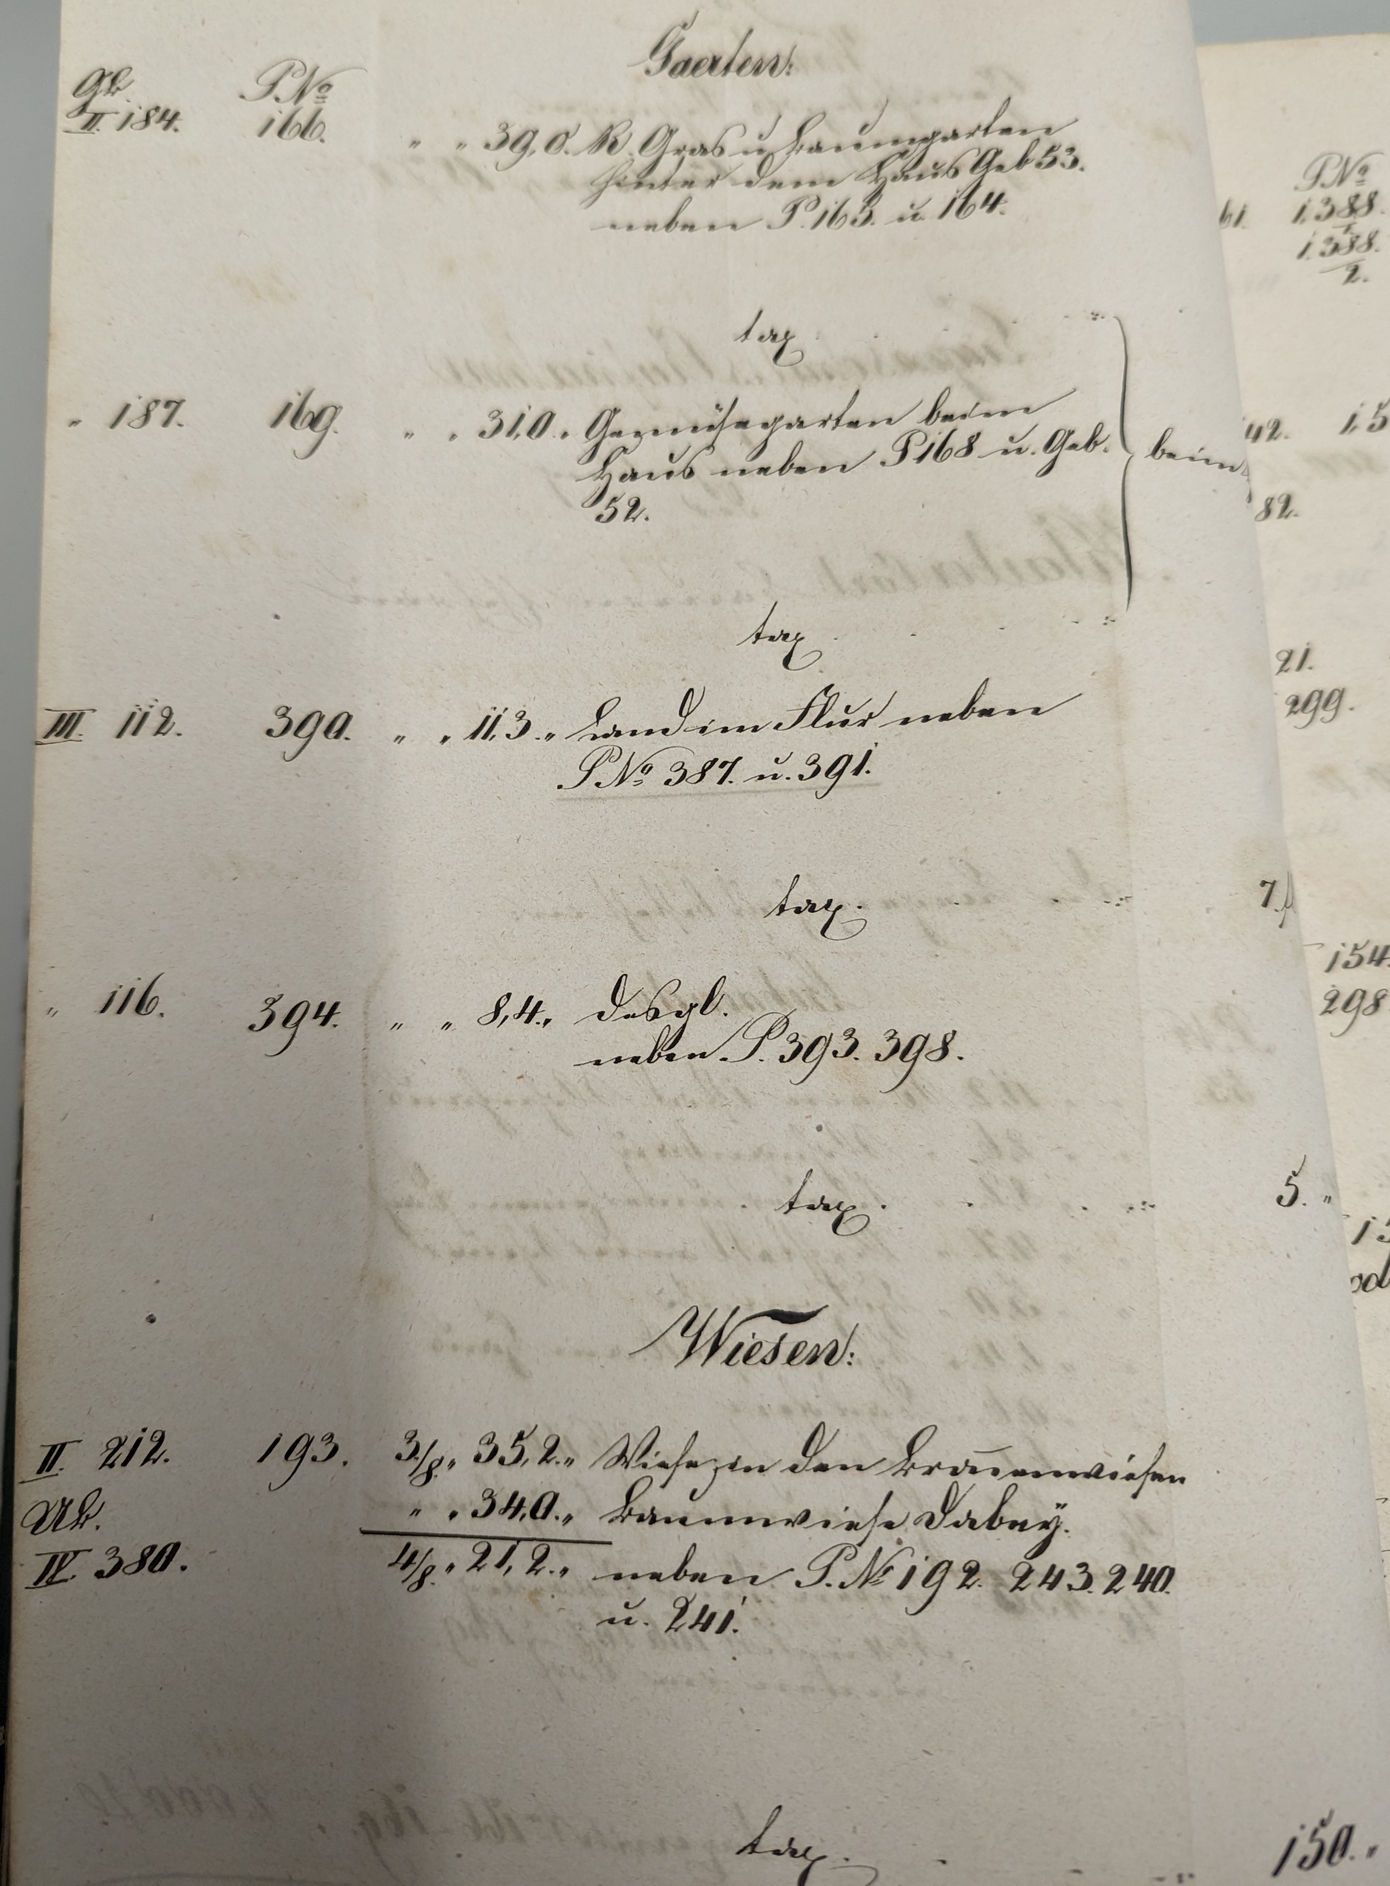 Gaerten:
Gb PNo
II. 184. 166. " " 39,0. R. Gras u Baumgarten
hinter dem Haus Geb 53.
neben P. 163. u. 164.
tax
" 187. 169. " " 31,0. " Gemüsegarten beim
Haus neben P 168 u. Geb. beim
52.
tax
III. 112. 390. " " 11,3. " Land im Flur neben
PNo 387. u. 391.
tax. 7.
" 116. 394. " " 8,4. " desgl.
neben P. 393. 398.
tax. 5. "
Wiesen:
II. 212. 193. 3/8. " 35,2. " Wiese in den Brounenwiesen
Ub. " " 34,0. " Baumwiese Dabey.
IV. 380. 4/8. " 21,2. " neben P. No 192. 243. 240.
u. 241.
tax. 150. "
PNo
61. 1388.
1.
1388.
2.
42. 15
82.
21.
299.
154.
298